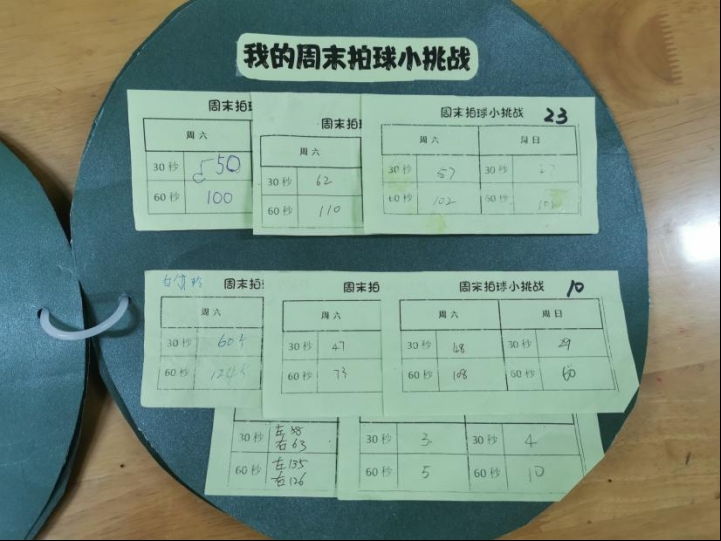 我的周末拍球小挑战
周末拍
周六
30秒 50
60秒 100
周末拍
周六
30秒 62
60秒 110
周末拍球小挑战 23
周六 周日
30秒 57 30秒
60秒 102 60秒
周末拍
周六
30秒
60秒
周末拍
周六
30秒 47
60秒 73
周末拍球小挑战 10
周六 周日
30秒 30秒
60秒 108 60秒 60
30秒 左 右63
60秒 左135 右126
30秒 3 30秒 4
60秒 5 60秒 10